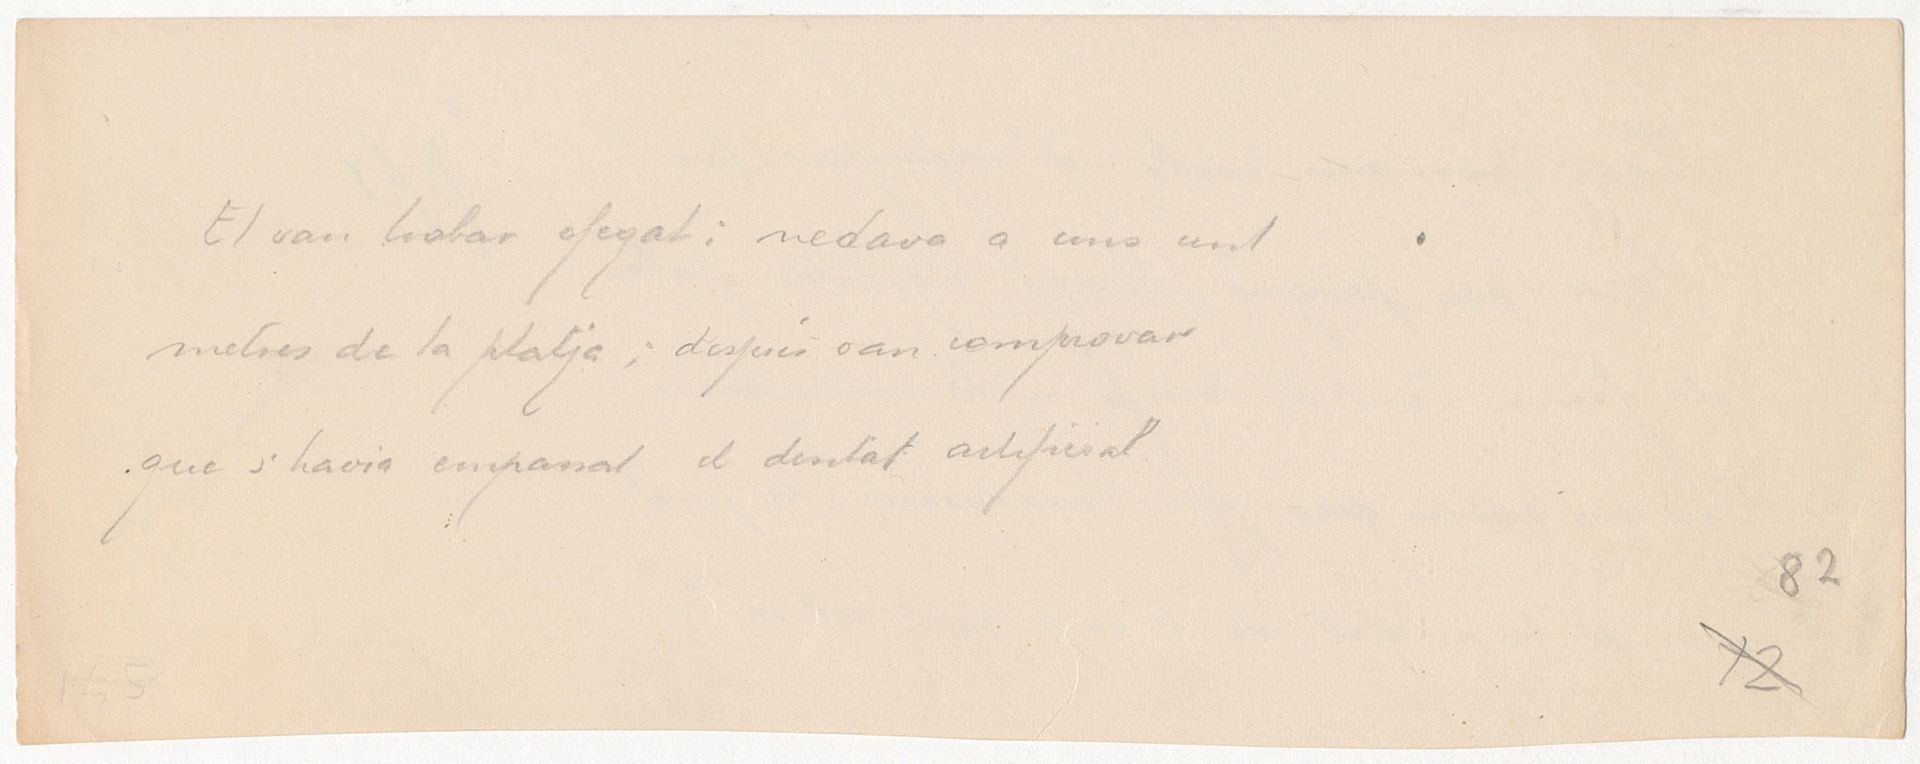 El van trobar ofegat; nedava a uns cent
metres de la platja; després van comprovar
que s'havia empassat el dentat artificial
82
72